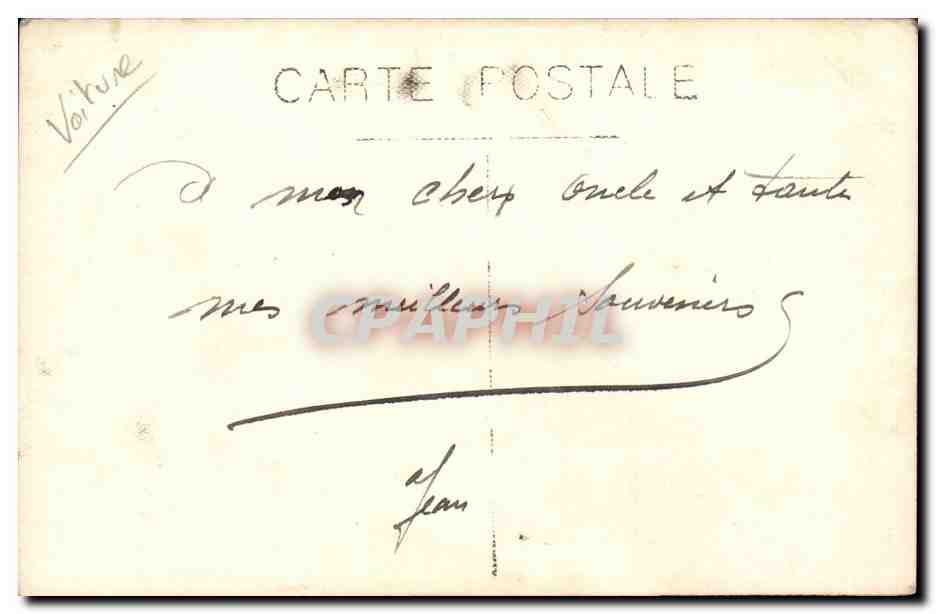 Voiture
CARTE POSTALE
A mon cher Oncle et tante
mes meilleurs Souvenirs
CPAPHIL
Jean